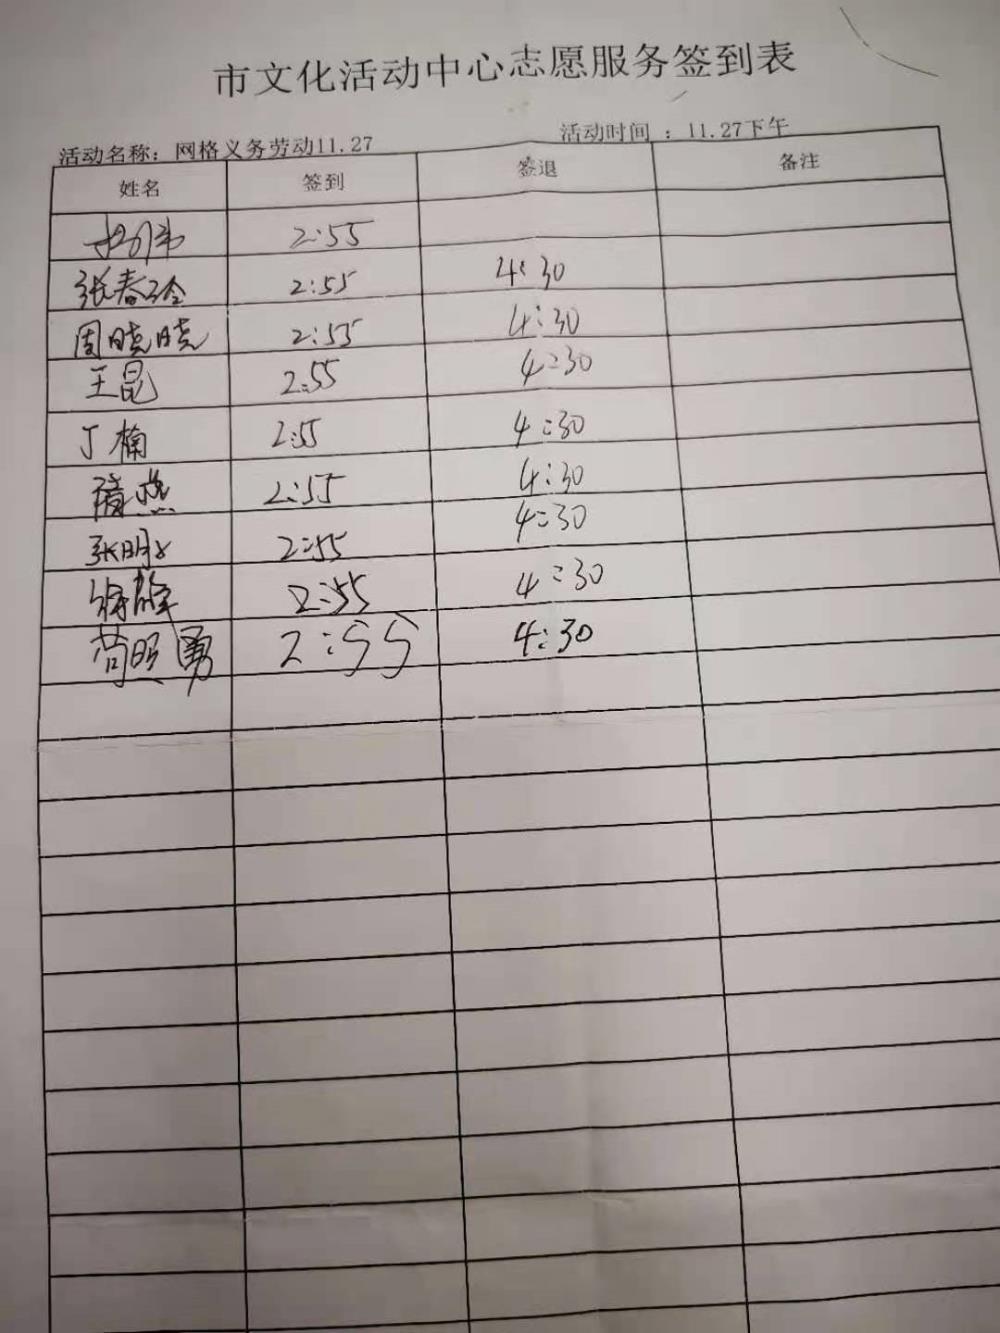 市文化活动中心志愿服务签到表
活动名称：网格义务劳动11.27 活动时间 ：11.27下午
姓名 签到 签退 备注
2:55
张春玲 2:55 4:30
周晓晓 2:55 4:30
王昆 2:55 4:30
丁楠 2:55 4:30
2:55 4:30
张明 2:55 4:30
2:55 4:30
苟照勇 2:55 4:30